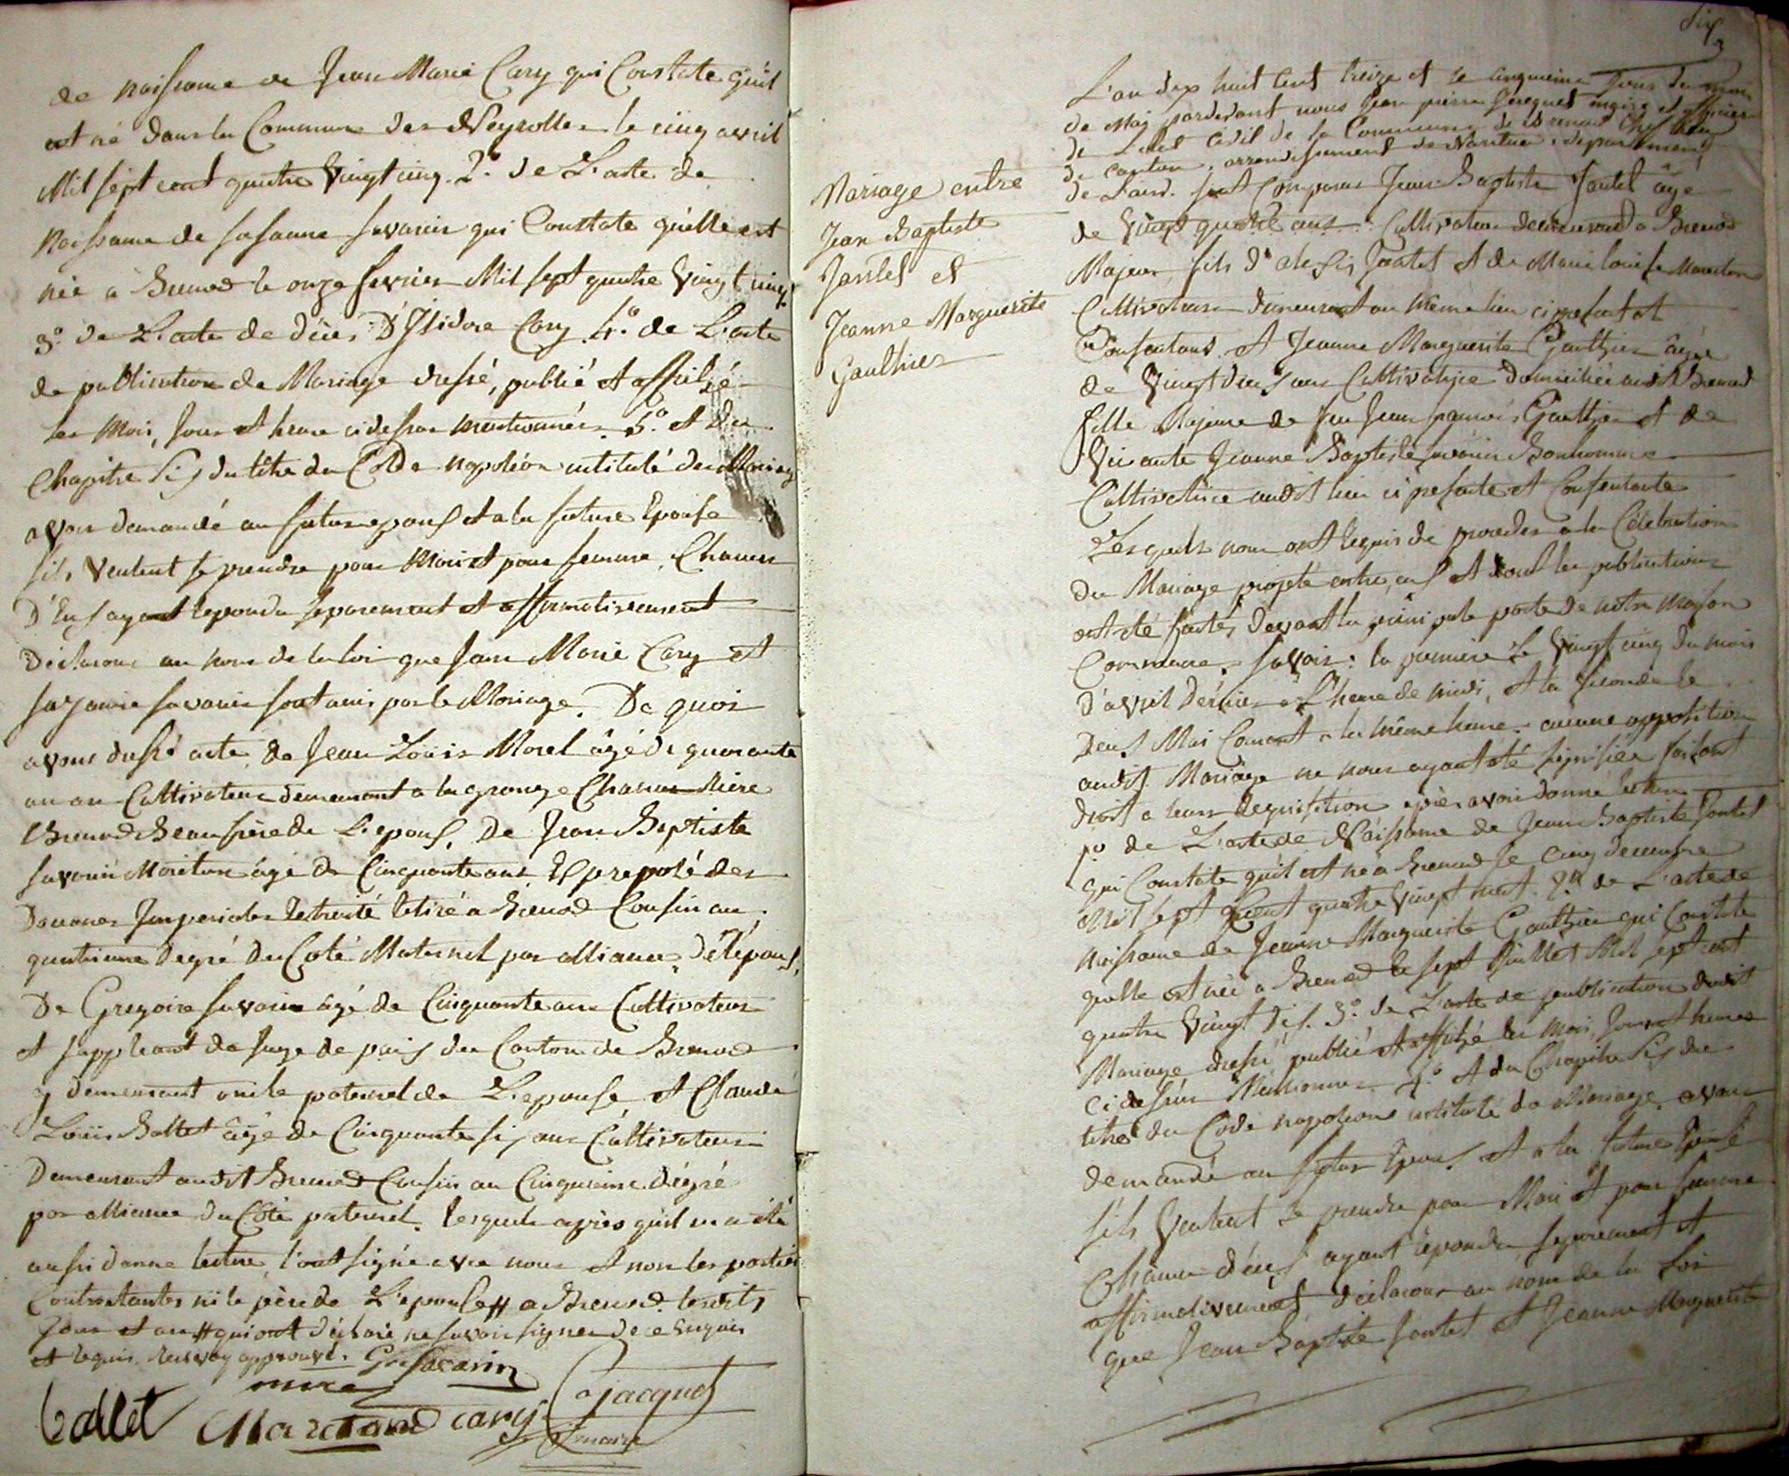 de naissance de Jean Marie Cary qui Constate qu'il
est né dans la Commune des Neyrolles le cinq avril
Mil sept cent quatre Vingt cinq. 2.° de L'acte de
Naissance de Susanne Savarin qui Constate qu'elle est
née a Brenod le onze fevrier Mil sept quatre Vingt cinq
3.° de L'acte de décès D'Isidore Cary 4.° de L'acte
de publication de Mariage dressé, publié et affiché
les Mois, Jours et heure ci dessus mentionnés. 5.° et Du
Chapitre Six du titre du Code Napoléon intitulé du Mariage
avons demandé au futur epoux et a la future Epouse
s'ils veulent se prendre pour Mari et pour femme, Chacun
D'Eux ayant repondu separement et affirmativement
Déclarons au nom de la loi que Jean Marie Cary et
Savarin sont unis par le Mariage. De quoi
avons dressé acte, de Jean Louis Morel âgé de quarante
un an Cultivateur demeurant a la grange
Brenod Beaufrère de L'epoux, De Jean Baptiste
Savarin âgé de Cinquante ans preposé des
Douanes Imperiales retiré a Brenod Cousin au
quatrieme Degré du Coté Maternel par alliance
De Gregoire Savarin âgé de Cinquante ans Cultivateur
et suppleant de Juge de paix du Canton de Brenod
y demeurant oncle paternel de L'epouse et Claude
Louis Ballet âgé de Cinquante six ans Cultivateur
Demeurant audit Brenod Cousin au Cinquieme dégré
par alliance du Côté paternel. lesquels après qu'il en a été
aussi donné lecture, l'ont signé avec nous et non les parties
Contractantes ni le père de L'epouse # a Brenod. lesdits
Jour et an # qui ont déclaré ne savoir signer de ce enquis
et requis. Renvoy approuvé. Gre Savarin
Ballet Marchand Cary Jacquet
maire
Mariage entre
Jean Baptiste
Jantet et
Jeanne Marguerite
Gaulthier
Six
L'an dix huit cent treize et le cinquieme Jour du mois
de May pardevant nous Jean pierre Jacquet maire et officier
de L'etat Civil de la Commune de Brenod Chef lieu
de Canton, arrondissement de Nantua, departement
de L'ain. sont Comparus Jean Baptiste Jantet âgé
de Vingt quatre ans Cultivateur demeurant a Brenod
Majeur fils d'alexis Jantet et de Marie Louise
Cultivateurs demeurant au même lieu ci present et
Consentans et Jeanne Marguerite Gaulthier âgée
de Vingt deux ans Cultivatrice Domiciliée audit Brenod
fille Majeure de feu Jean francois Gaulthier et de
Vivante Jeanne Baptiste Savarin Bonhomme
Cultivatrice audit lieu ci presente et Consentante
Lesquels nous ont requis de proceder a la Célébration
du Mariage projeté entre eux et dont les publications
ont été faites devant la principale porte de notre Maison
Commune. savoir: la premiere le Vingt cinq du mois
d'avril dernier a L'heure de midi, et la seconde le
Deux Mai Courant a la même heure. aucune opposition
audit Mariage ne nous ayant été signifiée faisant
droit a leur requisition après avoir donné lecture
1.° de L'acte de Naissance de Jean Baptiste Jantet
qui Constate qu'il est né a Brenod le cinq decembre
Mil sept Cent quatre Vingt huit. 2.° de L'acte de
naissance de Jeanne Marguerite Gaulthier qui Constate
qu'elle est née a Brenod le sept Juillet Mil sept cent
quatre Vingt dix. 3.° de L'acte de publication dudit
Mariage dressé, publié et affiché les Mois, Jours et heures
ci dessus Mentionnés 4.° et du Chapitre Six du
titre du Code Napoleon intitulé du Mariage avons
demandé au futur Epoux et a la future Epouse
s'ils Veulent se prendre pour Mari et pour femme
Chacun d'eux ayant répondu separement et
affirmativement déclarons au nom de la Loi
que Jean Baptiste Jantet et Jeanne Marguerite